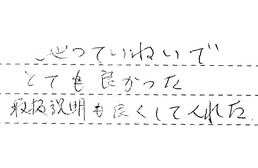 ていねいで
とても良かった
取扱説明も良くしてくれた。